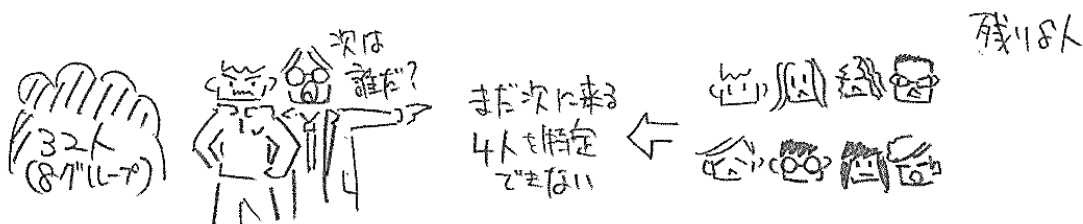 32人
(8グループ)
次は
誰だ?
まだ次に来る
4人を特定
できない
残り8人